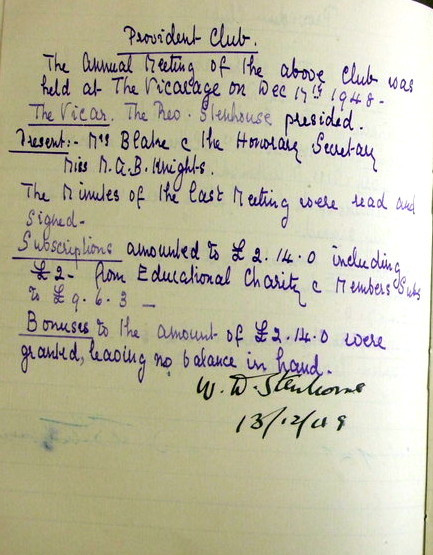 Provident Club.
The Annual Meeting of the above Club was
held at The Vicarage on Dec 17th 1948-
The Vicar. The Rev. Stenhouse presided.
Present:- Mrs Blake & the Honorary Secretary
Miss M.A.B. Knights.
The Minutes of the last Meeting were read and
signed-
Subscriptions amounted to £2.14.0 including
£2- from Educational Charity & Members Subs
to £9.6.3 —
Bonuses to the amount of £2.14.0 were
granted, leaving no balance in hand.
W. W. Stenhouse
13/12/49